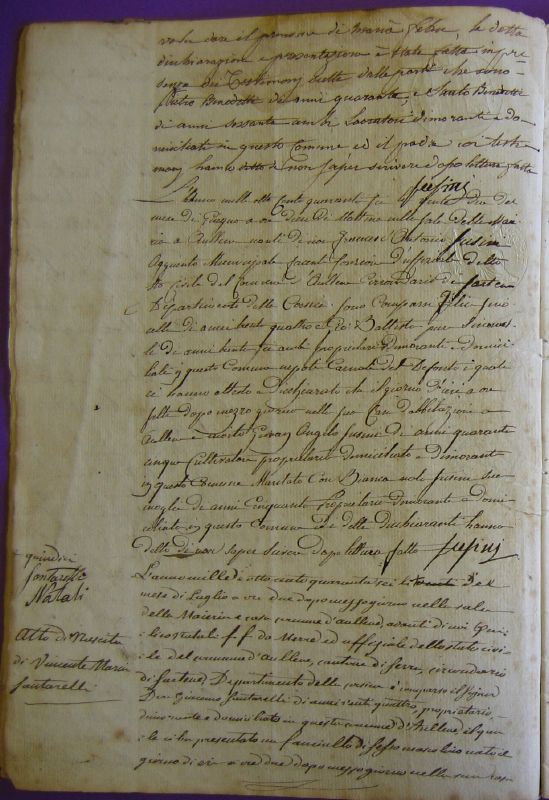 voluto dare il prenome di Maria Felice, la detta
dichiarazione e presentazione è stata fatta in pre-
senza dei Testimonj dalla parte che sono
Pietro Benedetti di anni quaranta, e Santo Benedetti
di anni sessanta ambi Lavoratori dimoranti e do-
miciliati in questo Comune ed il padre coi testi-
monj hanno detto di non saper scrivere dopo lettura fatta
Fusinj
L'anno mille otto cento quaranta sei del
mese di Giugno a ore dieci di Mattina nella sala della Mai-
ria a Aullene avanti di noi Francesco Antonio Fusini
Aggiunto Municipale facente funzioni d'uffiziale dello
stato Civile del Comune d'Aullene Circondario di Sartena
Dipartimento della Corsica sono Comparsi Felice
di anni trenta quattro e Gio: Battista
di anni trenta sei ambi proprietari dimoranti e domici-
liati in questo Comune nepoti Carnali del Defonto i quali
ci hanno attesto e Dichiarato che il giorno d'ieri a ore
sette dopo mezzo giorno nella sua Casa d'abbitazione a
Aullene è morto Giovan Angelo Fusini di anni quaranta
cinque Cultivatore proprietario domiciliato e Dimorante
in questo Comune Maritato Con Bianca Fusini sua
moglie di anni Cinquanta Proprietaria dimorante e domi-
ciliata in questo Comune e detti Dichiaranti hanno
detto di non saper scrivere Dopo lettura fatta Fusinj
quindici
Santarelli
Natali
Atto di Nascita
di Vincente Maria
Santarelli
L'anno mille di otto cento quaranta sei del
mese di Luglio a ore due dopo mezzo giorno nella sala
della Maieria e casa comune d'Aullene, avanti di noi
ff da Merre ed uffiziale dello stato civi-
le del comune d'Aullene, cantone di Serra, circondario
di Sartena, Dipartimento della corsica è comparso il signor
Don Giacomo Santarelli di anni venti quattro, proprietario,
dimorante e domiciliato in questo comune d'Aullene, il qua-
le ci ha presentato un fanciullo di sesso mascolino nato il
giorno di ieri a ore due dopo mezzo giorno nella sua casa